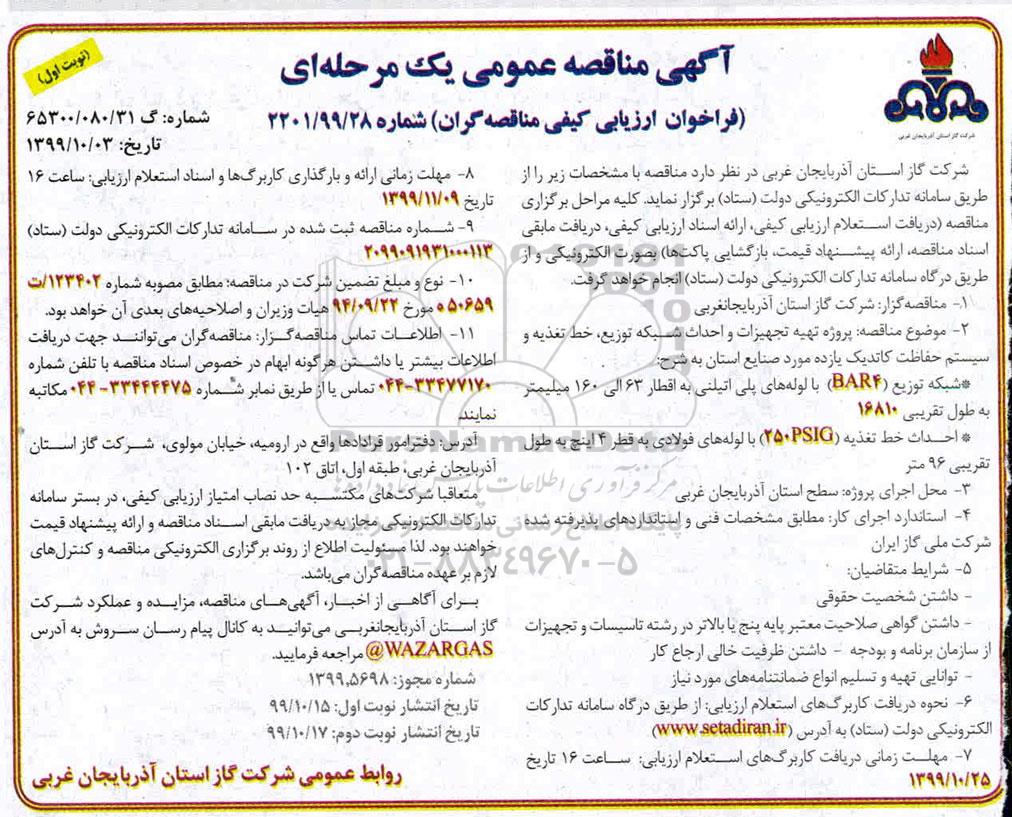 (نوبت اول)
آگهی مناقصه عمومی یک مرحله‌ای
(فراخوان ارزیابی کیفی مناقصه‌گران) شماره ۲۲۰۱/۹۹/۲۸
شماره: گ ۶۵۳۰۰/۰۸۰/۳۱
تاریخ: ۱۳۹۹/۱۰/۰۳
شرکت گاز استان آذربایجان غربی
شرکت گاز استان آذربایجان غربی در نظر دارد مناقصه با مشخصات زیر را از
طریق سامانه تدارکات الکترونیکی دولت (ستاد) برگزار نماید. کلیه مراحل برگزاری
مناقصه (دریافت استعلام ارزیابی کیفی، ارائه اسناد ارزیابی کیفی، دریافت مابقی
اسناد مناقصه، ارائه پیشنهاد قیمت، بازگشایی پاکت‌ها) بصورت الکترونیکی و از
طریق درگاه سامانه تدارکات الکترونیکی دولت (ستاد) انجام خواهد گرفت.
۱- مناقصه‌گزار: شرکت گاز استان آذربایجانغربی
۲- موضوع مناقصه: پروژه تهیه تجهیزات و احداث شبکه توزیع، خط تغذیه و
سیستم حفاظت کاتدیک یازده مورد صنایع استان به شرح:
*شبکه توزیع (BAR۴) با لوله‌های پلی اتیلنی به اقطار ۶۳ الی ۱۶۰ میلیمتر
به طول تقریبی ۱۶۸۱۰
* احداث خط تغذیه (۲۵۰PSIG) با لوله‌های فولادی به قطر ۴ اینچ به طول
تقریبی ۹۶ متر
۳- محل اجرای پروژه: سطح استان آذربایجان غربی
۴- استاندارد اجرای کار: مطابق مشخصات فنی و استانداردهای پذیرفته شده
شرکت ملی گاز ایران
۵- شرایط متقاضیان:
- داشتن شخصیت حقوقی
- داشتن گواهی صلاحیت معتبر پایه پنج یا بالاتر در رشته تاسیسات و تجهیزات
از سازمان برنامه و بودجه - داشتن ظرفیت خالی ارجاع کار
- توانایی تهیه و تسلیم انواع ضمانتنامه‌های مورد نیاز
۶- نحوه دریافت کاربرگ‌های استعلام ارزیابی: از طریق درگاه سامانه تدارکات
الکترونیکی دولت (ستاد) به آدرس (www.setadiran.ir)
۷- مهلت زمانی دریافت کاربرگ‌های استعلام ارزیابی: ساعت ۱۶ تاریخ
۱۳۹۹/۱۰/۲۵
۸- مهلت زمانی ارائه و بارگذاری کاربرگ‌ها و اسناد استعلام ارزیابی: ساعت ۱۶
تاریخ ۱۳۹۹/۱۱/۰۹
۹- شماره مناقصه ثبت شده در سامانه تدارکات الکترونیکی دولت (ستاد)
۲۰۹۹۰۹۱۹۳۱۰۰۰۱۱۳
۱۰- نوع و مبلغ تضمین شرکت در مناقصه: مطابق مصوبه شماره ۱۲۳۴۰۲/ت
۵۰۶۵۹ ه مورخ ۹۴/۰۹/۲۲ هیات وزیران و اصلاحیه‌های بعدی آن خواهد بود.
۱۱- اطلاعات تماس مناقصه‌گزار: مناقصه‌گران می‌توانند جهت دریافت
اطلاعات بیشتر یا داشتن هرگونه ابهام در خصوص اسناد مناقصه با تلفن شماره
۰۴۴-۳۳۴۷۷۱۷۰ تماس یا از طریق نمابر شماره ۳۳۴۴۴۴۷۵-۰۴۴ مکاتبه
نمایند.
آدرس: دفتر امور قرادادها واقع در ارومیه، خیابان مولوی، شرکت گاز استان
آذربایجان غربی، طبقه اول، اتاق ۱۰۲
متعاقبا شرکت‌های مکتسبه حد نصاب امتیاز ارزیابی کیفی، در بستر سامانه
تدارکات الکترونیکی مجاز به دریافت مابقی اسناد مناقصه و ارائه پیشنهاد قیمت
خواهند بود. لذا مسئولیت اطلاع از روند برگزاری الکترونیکی مناقصه و کنترل‌های
لازم بر عهده مناقصه‌گران می‌باشد.
برای آگاهی از اخبار، آگهی‌های مناقصه، مزایده و عملکرد شرکت
گاز استان آذربایجانغربی می‌توانید به کانال پیام رسان سروش به آدرس
@WAZARGAS مراجعه فرمایید.
شماره مجوز: ۱۳۹۹،۵۶۹۸
تاریخ انتشار نوبت اول: ۹۹/۱۰/۱۵
تاریخ انتشار نوبت دوم: ۹۹/۱۰/۱۷
روابط عمومی شرکت گاز استان آذربایجان غربی
ParsNamadData
مرکز فرآوری اطلاعات پارس نماد داده‌ها
۰۲۱-۸۸۳۴۹۶۷۰-۵